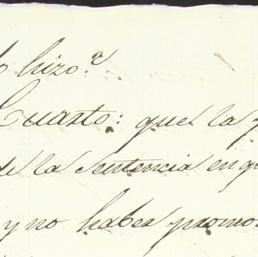 hizo.
Cuarto: que la
de la sentencia en q
y no haber promo